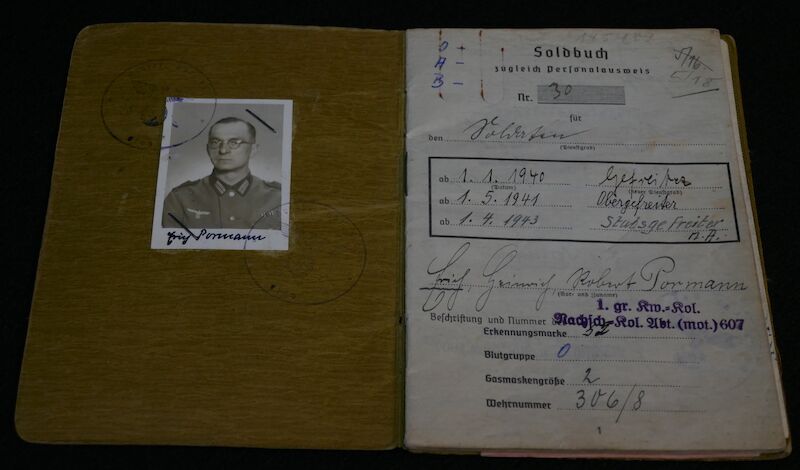 Erich Pormann
O +
A -
B -
Soldbuch
zugleich Personalausweis
Nr. 30
für
den Soldaten
(Dienstgrad)
ab 1. 1. 1940 Gefreiter
(Datum) (neuer Dienstgrad)
ab 1. 5. 1941 Obergefreiter
ab 1. 4. 1943 Stabsgefreiter
Erich, Heinrich, Robert Pormann
(Vor- und Zuname)
1. gr. Kw.-Kol.
Beschriftung und Nummer
Nachsch-Kol. Abt. (mot.) 607
Erkennungsmarke 32
Blutgruppe O
Gasmaskengröße 2
Wehrnummer 306/8
1